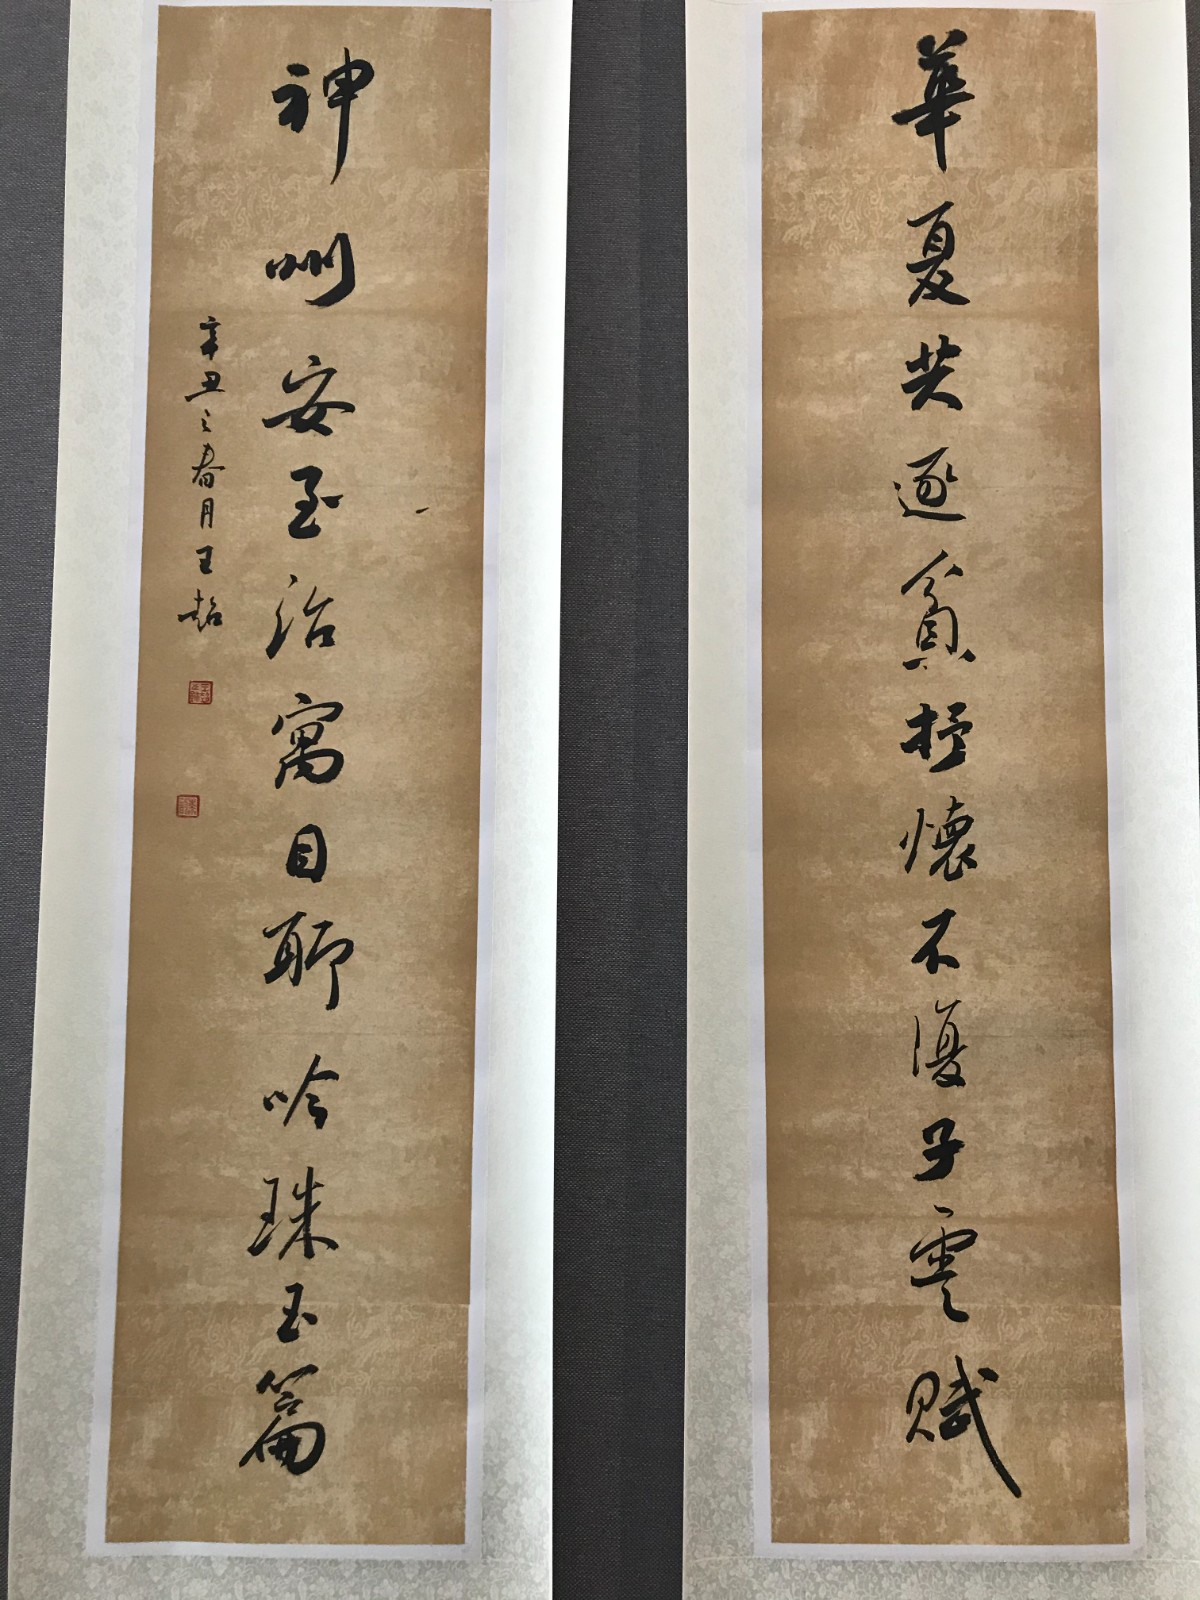 華夏共逐貧懷不復子雲賦
神州安至治寓目聊吟珠玉篇
辛丑之春月王超